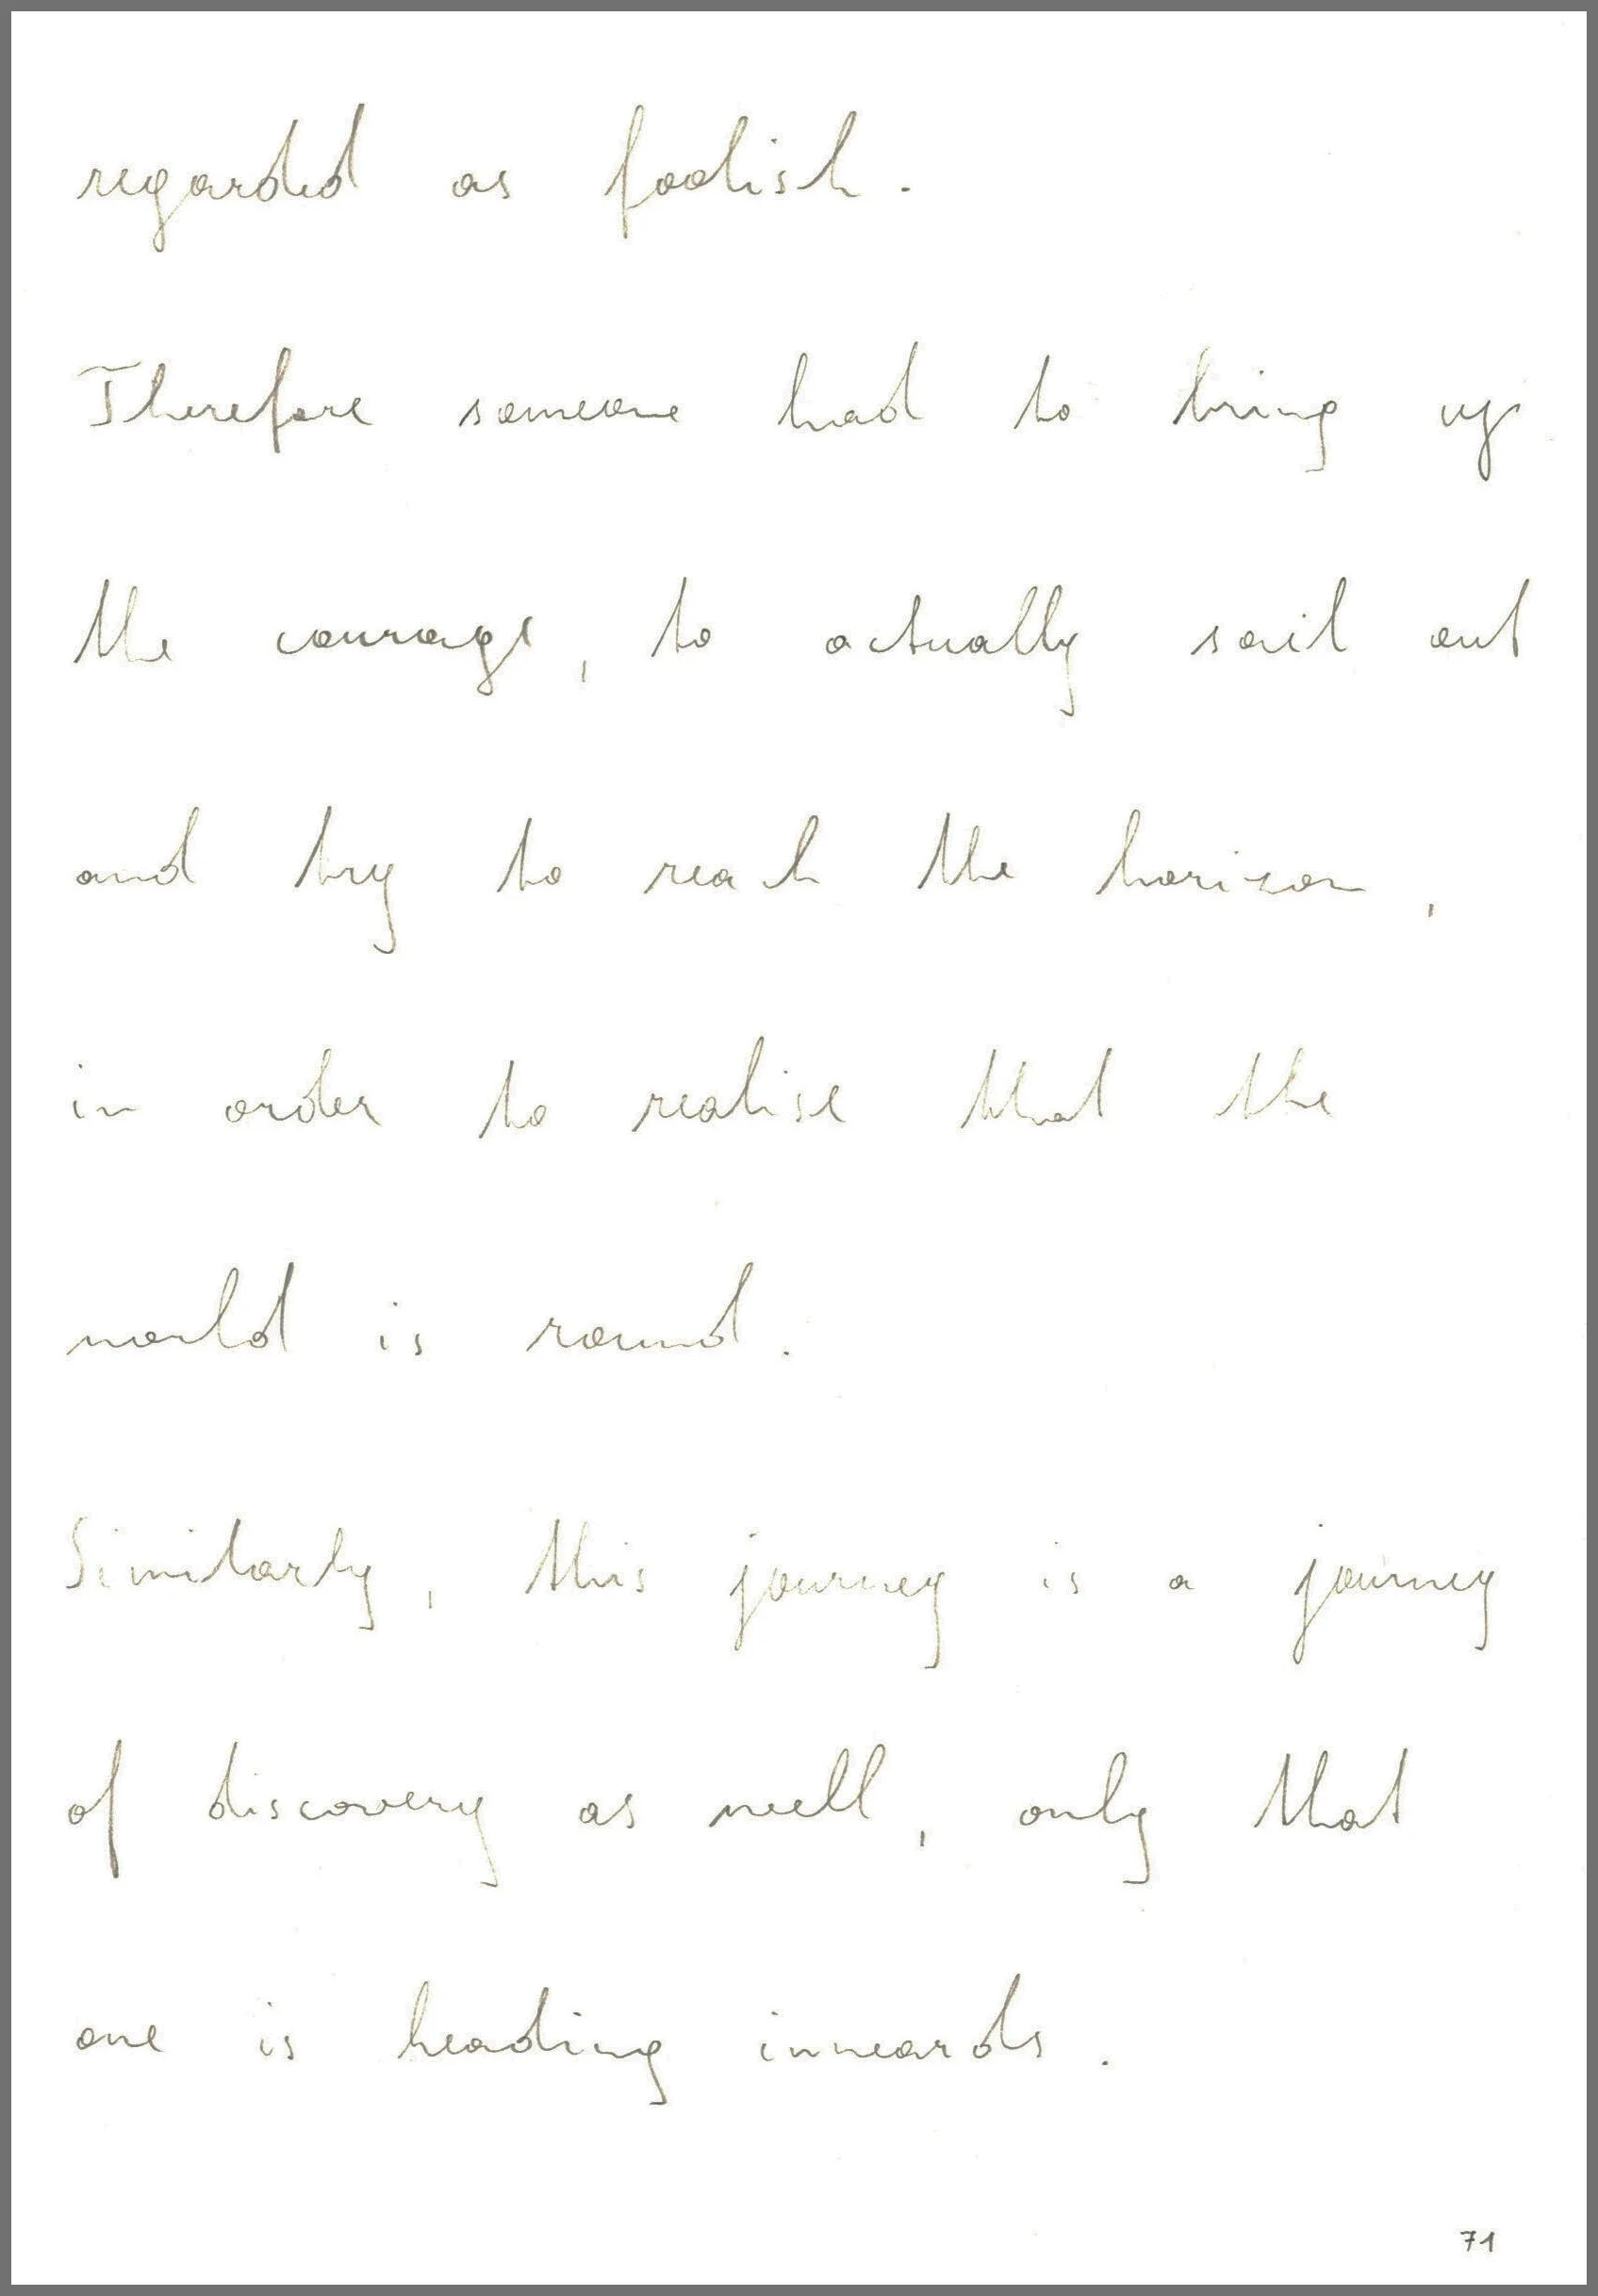 regarded as foolish.
Therefore someone had to bring up
the courage, to actually sail out
and try to reach the horizon,
in order to realise that the
world is round.
Similarly, this journey is a journey
of discovery as well, only that
one is heading inwards.
71